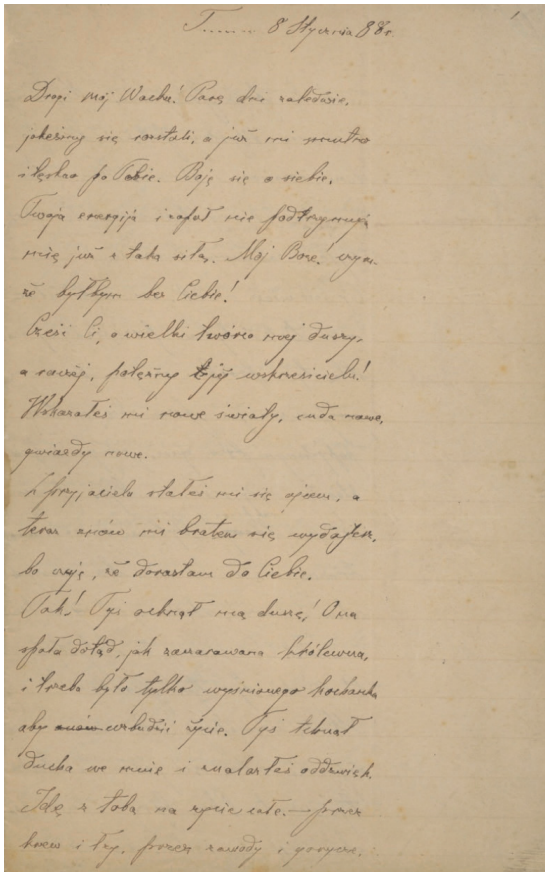 1
T...... 8 Stycznia 88r.
Drogi mój Wacku! Parę dni zaledwie,
jakeśmy się rozstali, a już mi smutno
i tęskno po Tobie. Boję się o siebie.
Twoja energija i zapał nie podtrzymują
mię już z taką siłą. Mój Boże! czem
że byłbym bez Ciebie!
Cześć Ci, o wielki twórco mej duszy,
a raczéj, potężny jéj wskrzesicielu!
Wskazałeś mi nowe światy, cuda nowe,
gwiazdy nowe.
Z przyjaciela stałeś mi się ojcem, a
teraz znów mi bratem się wydajesz,
bo czuję, że dorastam do Ciebie.
Tak! Tyś ocknął mą duszę! Ona
spała dotąd, jak zaczarowana królewna,
i trzeba było tylko wyśnionego kochanka
aby znów wzbudzić życie. Tyś tchnął
ducha we mnie i znalazłeś oddźwięk.
Idę z tobą na życie całe. — przez
krew i łzy, przez zawody i gorycze,